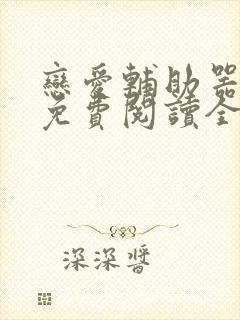 戀愛輔助器
免費閱讀全
深深醬